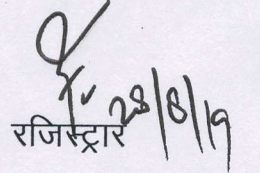 28/8/19
रजिस्ट्रार